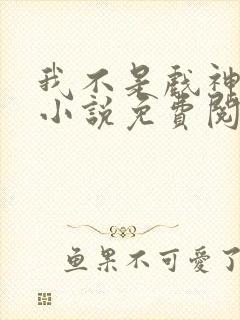 我不是戲神
小說免費閱
鱼果不可愛了